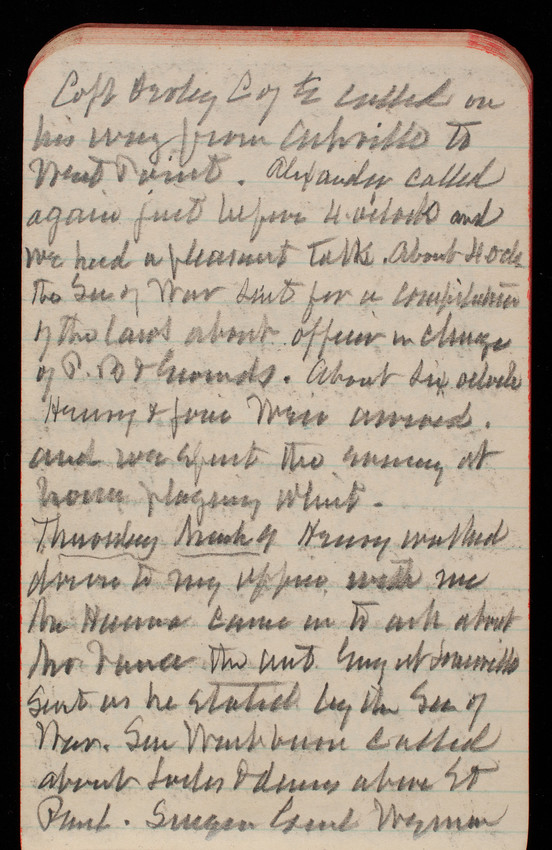 Capt Derby C of E called on
his way from Ashville to
West Point. Alexander called
again just before 4 o'clock and
we had a pleasant talk. About 4 ock
the Sec of War sent for a compilation
of the laws about officer in charge
of P. B & Grounds. About six oclock
Henry & Weir arrived.
and we spent the evening at
home playing Whist.
Thursday March 9 Henry walked
down to my office with me
Mr came in to ask about
the asst Eng at
Sent as he stated by the Sec of
War. Sen Washburn called
about Locks & dams above St
Paul.